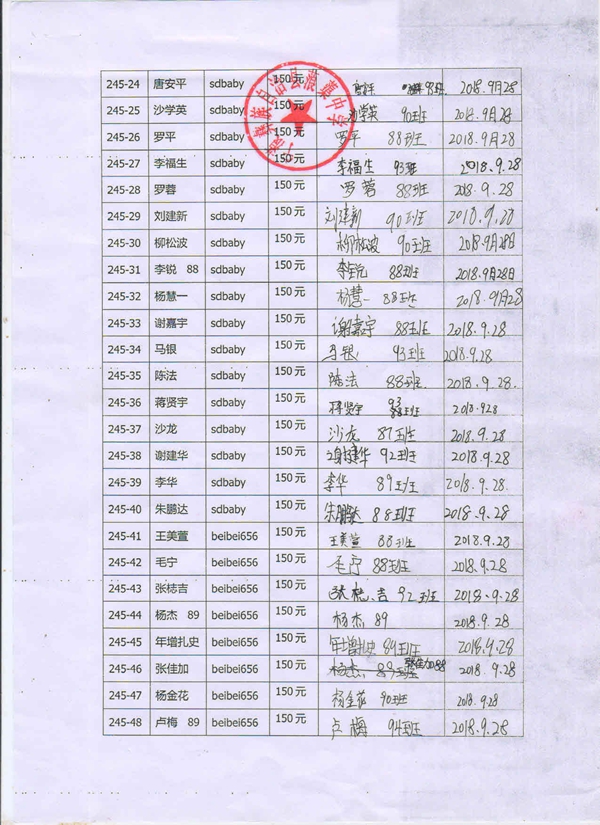 宁蒗彝族自治县蒗蕖中学
245-24 唐安平 sdbaby 150元 2018.9月28
245-25 沙学英 sdbaby 150元 沙学英 90班 2018.9月28
245-26 罗平 sdbaby 150元 罗平 88班 2018.9月28
245-27 李福生 sdbaby 150元 李福生 93班 2018.9.28
245-28 罗蓉 sdbaby 150元 罗蓉 88班 2018.9.28
245-29 刘建新 sdbaby 150元 刘建新 90班 2018.9.28
245-30 柳松波 sdbaby 150元 柳松波 90班 2018.9月28日
245-31 李锐 88 sdbaby 150元 李锐 88班 2018.9月28日
245-32 杨慧一 sdbaby 150元 杨慧一 88班 2018.9月28
245-33 谢嘉宇 sdbaby 150元 谢嘉宇 88班 2018.9.28
245-34 马银 sdbaby 150元 马银 93班 2018.9.28
245-35 陈法 sdbaby 150元 陈法 88班. 2018.9.28.
245-36 蒋贤宇 sdbaby 150元 蒋贤宇 93 88班 2018.928
245-37 沙龙 sdbaby 150元 沙龙 87班 2018.9.28
245-38 谢建华 sdbaby 150元 谢建华 92班 2018.9.28
245-39 李华 sdbaby 150元 李华 89班 2018.9.28.
245-40 朱鹏达 sdbaby 150元 朱鹏达 88班 2018.9.28
245-41 王美萱 beibei656 150元 王美萱 88班 2018.9.28
245-42 毛宁 beibei656 150元 毛宁 88班 2018.9.28
245-43 张梽吉 beibei656 150元 张梽吉 92班 2018.9.28
245-44 杨杰 89 beibei656 150元 杨杰 89 2018.9.28
245-45 年增扎史 beibei656 150元 年增扎史 89班 2018.9.28
245-46 张佳加 beibei656 150元 杨杰 89班 张佳加88 2018.9.28
245-47 杨金花 beibei656 150元 杨金花 90班 2018.9.28
245-48 卢梅 89 beibei656 150元 卢梅 94班 2018.9.28